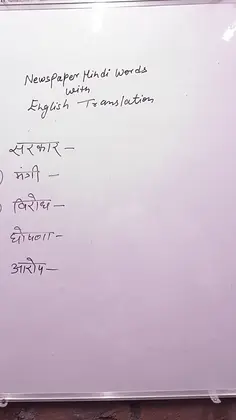 Newspaper Hindi Words
with
English Translation
सरकार -
) मंत्री -
) विरोध -
घोषणा -
आरोप -